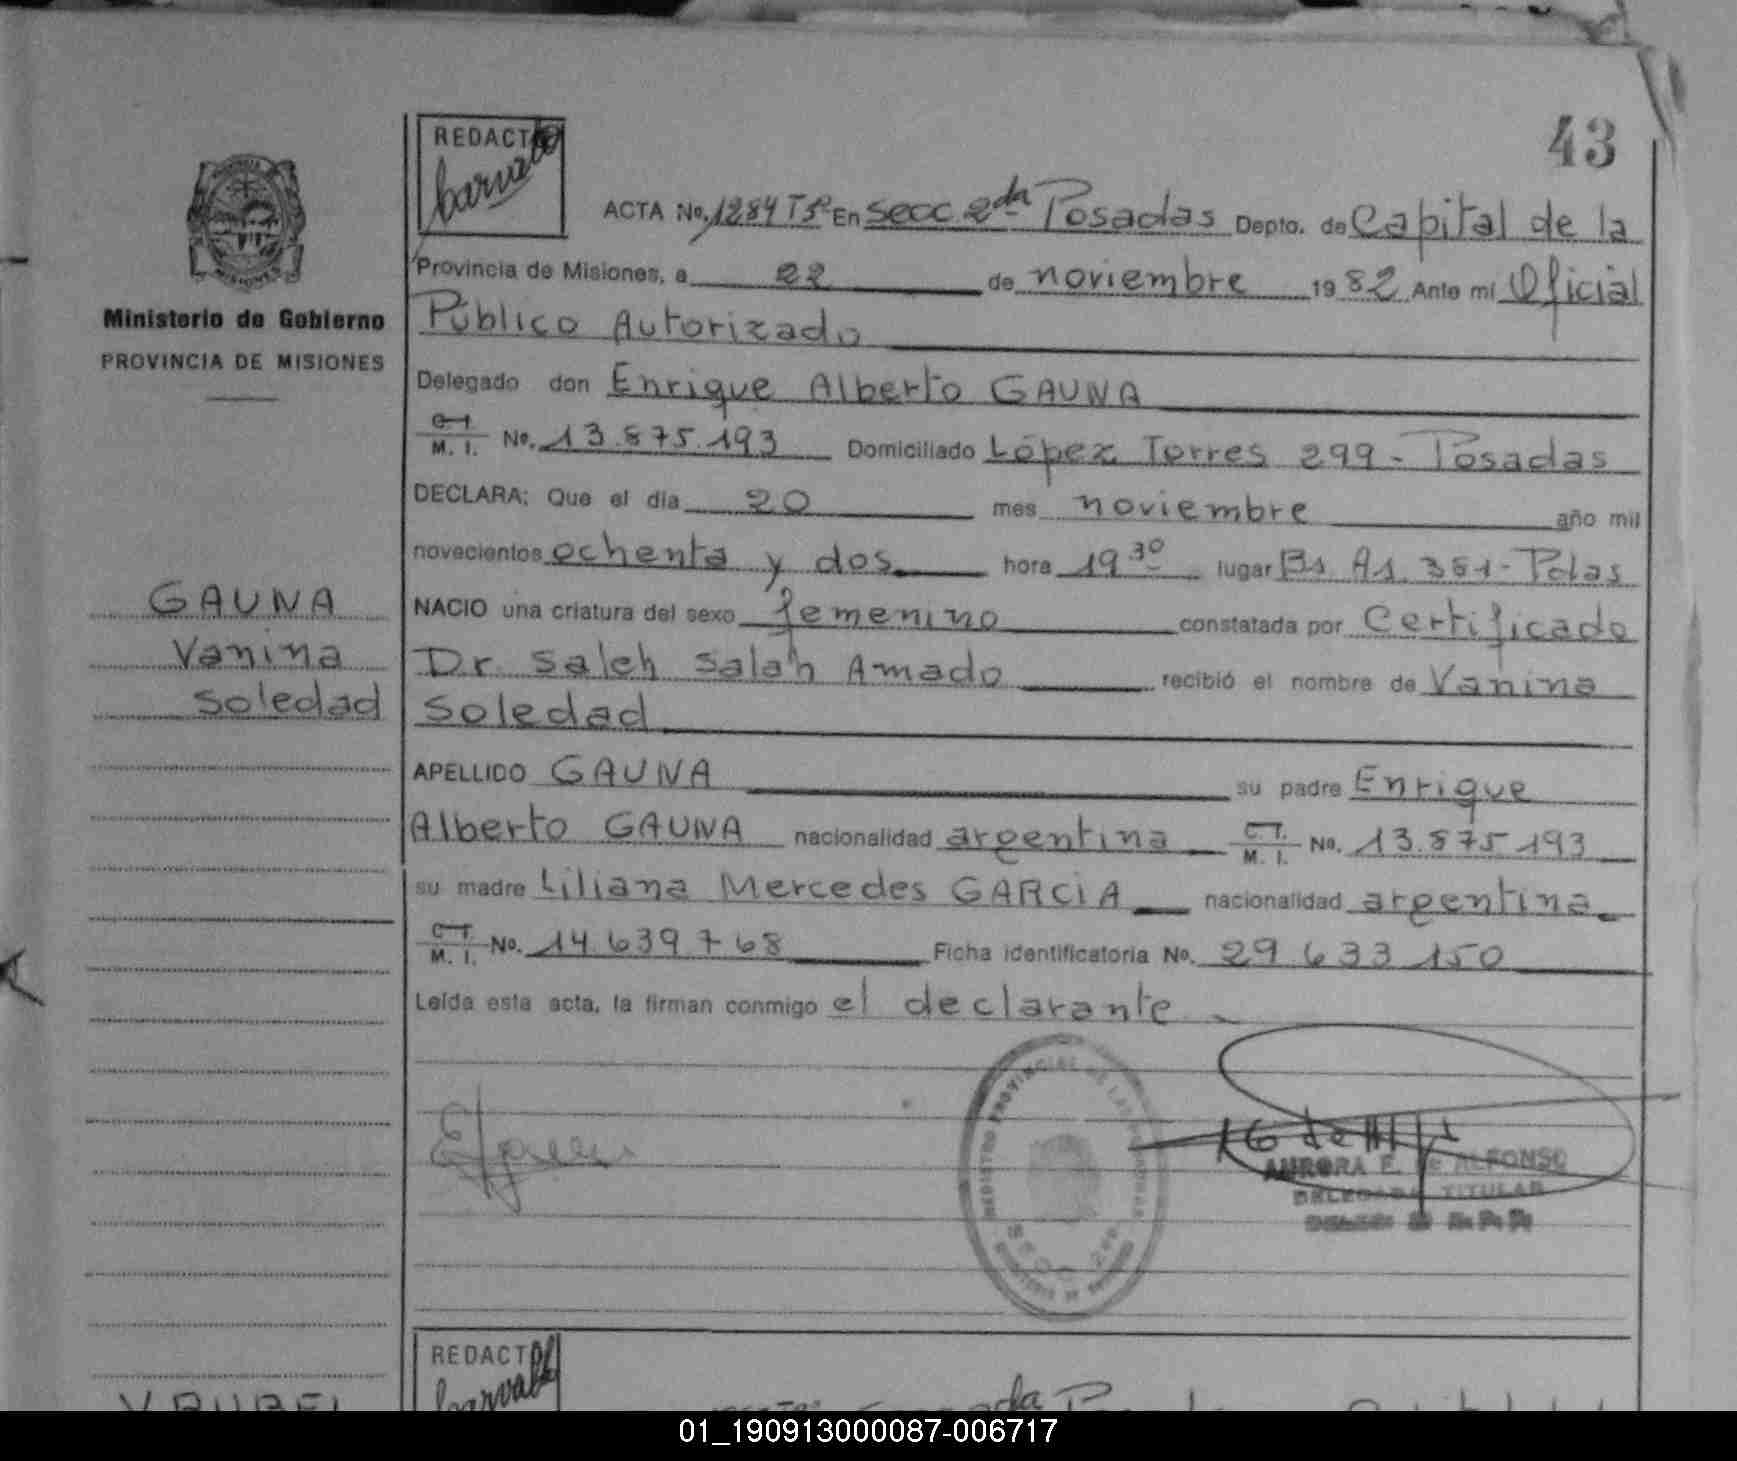 43
REDACTO
ACTA No. 1284 T5º En Secc. 2da Posadas Depto. de Capital de la
Provincia de Misiones, a 22 de noviembre 1982 Ante mí Oficial
Público Autorizado
Ministerio de Gobierno
PROVINCIA DE MISIONES
Delegado don Enrique Alberto GAUNA
C. I. M. I. No. 13.875.193 Domiciliado López Torres 299 - Posadas
DECLARA: Que el día 20 mes noviembre año mil
novecientos ochenta y dos hora 19 30 lugar Bs. As. 351 - Pdas
GAUNA
Vanina
Soledad
NACIO una criatura del sexo femenino constatada por Certificado
Dr. Saleh Salah Amado recibió el nombre de Vanina
Soledad
APELLIDO GAUNA su padre Enrique
Alberto GAUNA nacionalidad argentina C. I. M. I. No. 13.875 193
su madre Liliana Mercedes GARCIA nacionalidad argentina
C. I. M. I. No. 14.639 768 Ficha identificatoria No. 29 633 150
Leída esta acta, la firman conmigo el declarante
REGISTRO PROVINCIAL DE LAS PERSONAS
SECC. 2da
AURORA E. de ALFONSO
DELEGADA TITULAR
REDACTO
01_190913000087-006717